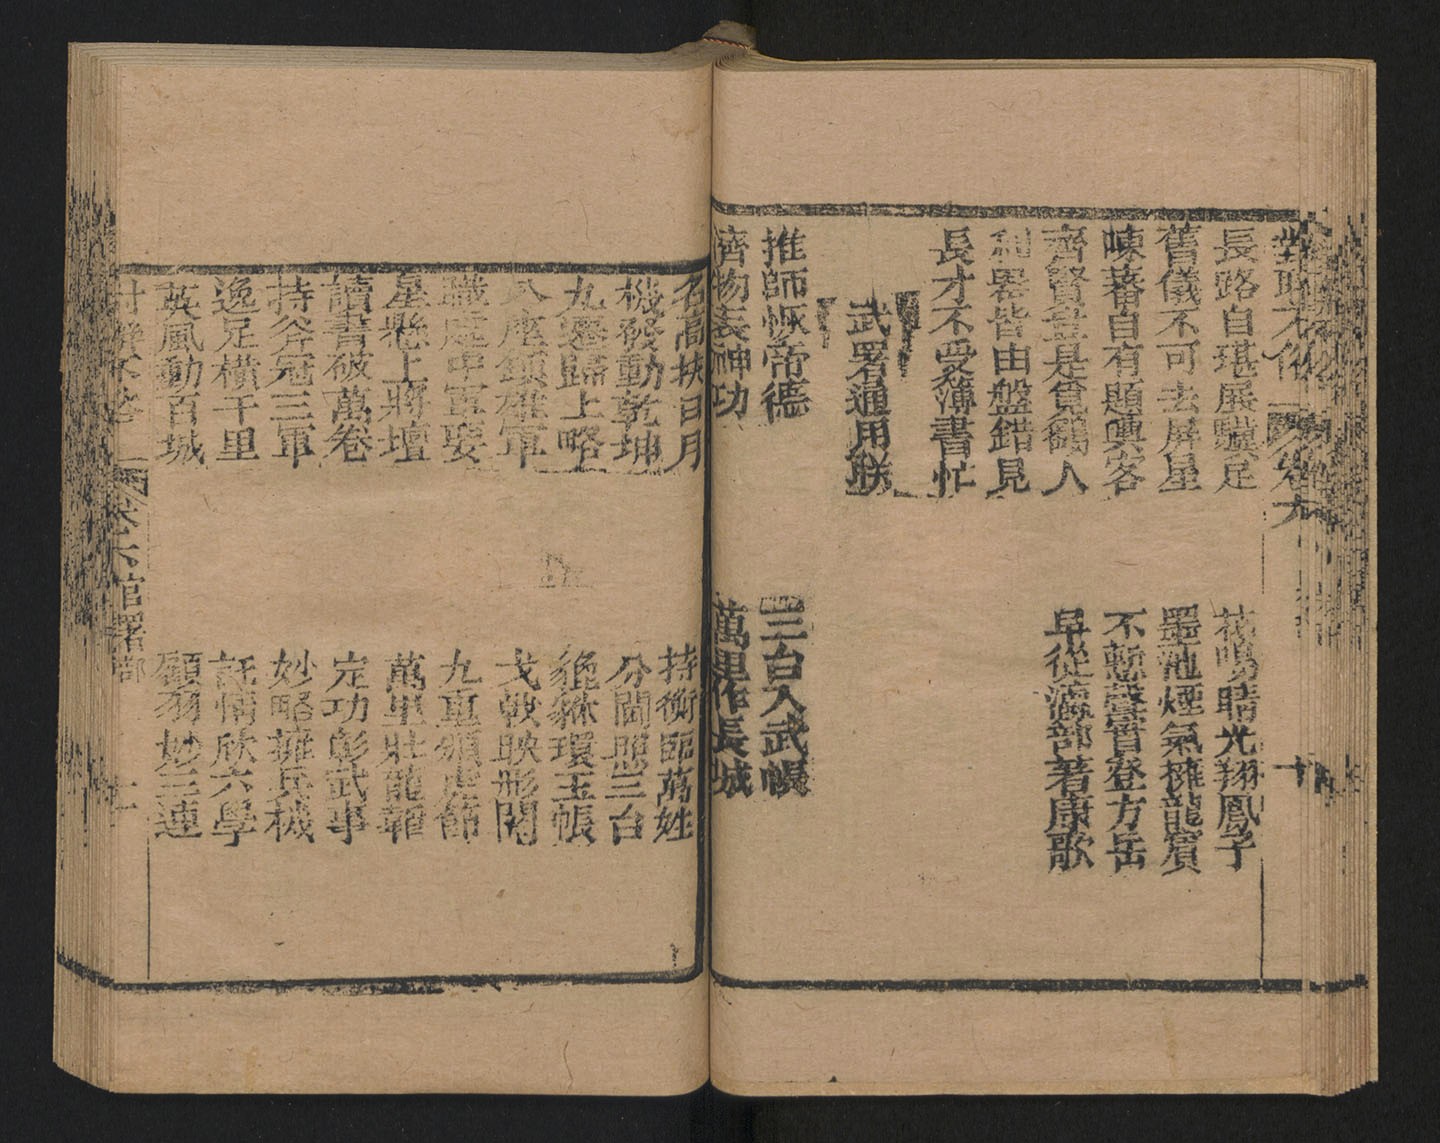 長路自堪展驥足
花鳴晴光翔鳳子
舊儀不可去屏星
墨池煙氣擁龍賓
自有題輿客
不慙聲管登方岳
齊賢
是覓鷁人
早從海部著康歌
利器皆由盤錯見
長才不受簿書忙
武署通用联
推師恢帝德
三台入武帳
濟物表神功
萬里作長城
名高扶日月
持衡臨萬姓
機發動乾坤
分閫照三台
九邊歸上略
貔貅環玉帳
八座領雄軍
戈戟映彤閣
職定中軍娶
九重頒虎節
星懸上將壇
萬里壯龍韜
讀書破萬卷
定功彰武事
持斧冠三軍
妙略擁兵機
逸足橫千里
託情欣六學
英風動百城
顧羽妙三連
卷六官署部